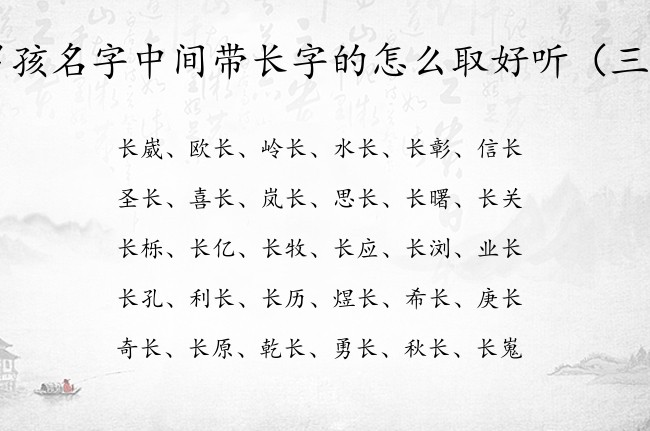 孩名字中间带长字的怎么取好听（三
长崴、欧长、岭长、水长、长彰、信长
圣长、喜长、岚长、思长、长曙、长关
长栎、长亿、长牧、长应、长浏、业长
长孔、利长、长历、煜长、希长、庚长
奇长、长原、乾长、勇长、秋长、长嵬